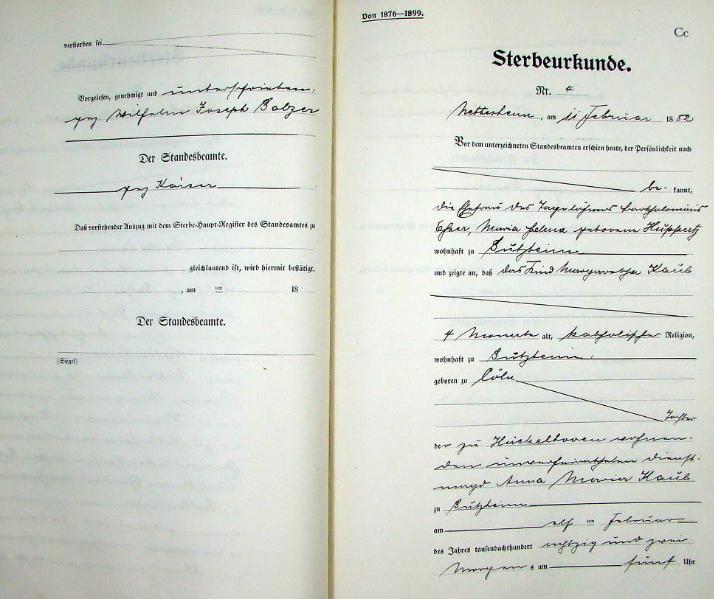 verstorben sei
Vorgelesen, genehmigt und unterschrieben.
gez. Wilhelm Joseph Balzer
Der Standesbeamte.
gez Kaiser
Daß vorstehender Auszug mit dem Sterbe-Haupt-Register des Standesamtes zu
gleichlautend ist, wird hiermit bestätigt.
, am ten 18
Der Standesbeamte.
(Siegel)
Von 1876—1899.
Cc
Sterbeurkunde.
Nr. 4
am 11 Februar 1882
Vor dem unterzeichneten Standesbeamten erschien heute, der Persönlichkeit nach
be- kannt,
die Ehefrau des Tagelöhners Bartholomäus
Esser, Maria Helena geborene Hüppertz
wohnhaft zu Butzheim
und zeigte an, daß das Kind Margaretha Kaub
4 Monate alt, katholischer Religion,
wohnhaft zu Butzheim,
geboren zu Cöln
Tochter
der zu Hückelhoven wohnen-
den unverheiratheten Dienst-
magd Anna Maria Kaub
zu Butzheim
am elf ten Februar
des Jahres tausendachthundert achtzig und zwei
Morgens um fünf Uhr